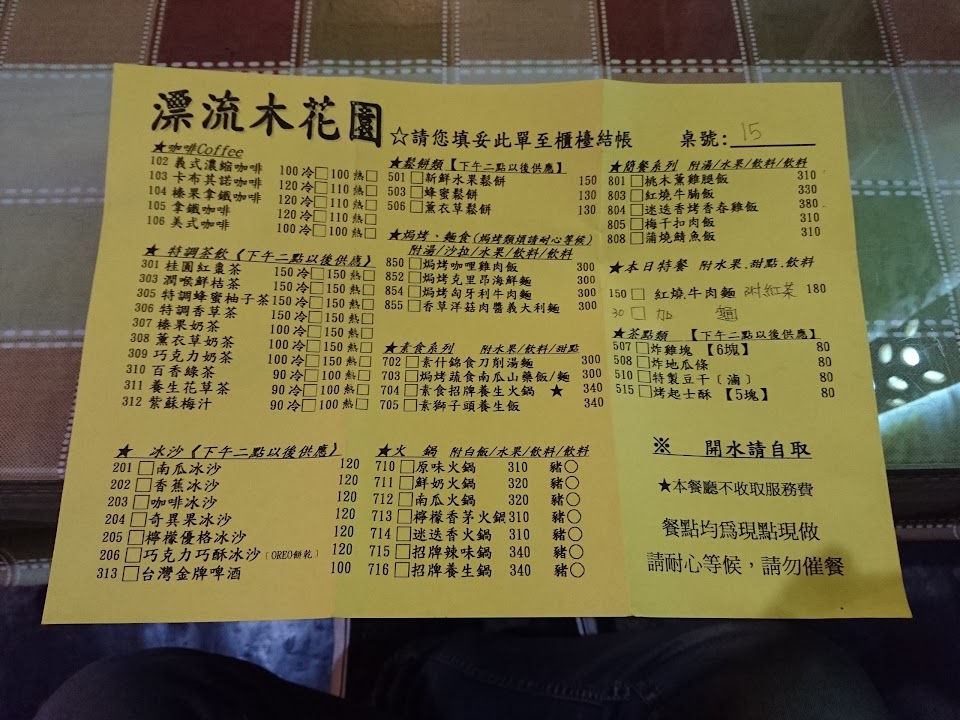 漂流木花園
☆請您填妥此單至櫃檯結帳
桌號:15
★咖啡Coffee
102 義式濃縮咖啡 100冷□100熱□
103 卡布其諾咖啡 120冷□110熱□
104 榛果拿鐵咖啡 120冷□110熱□
105 拿鐵咖啡 120冷□110熱□
106 美式咖啡 100冷□100熱□
★ 特調茶飲《下午二點以後供應》
301 桂圓紅棗茶 150冷□150熱□
303 潤喉鮮桔茶 150冷□150熱□
305 特調蜂蜜柚子茶150冷□150熱□
306 特調香草茶 150冷□150熱□
307 榛果奶茶 100冷□150熱□
308 薰衣草奶茶 100冷□150熱□
309 巧克力奶茶 100冷□150熱□
310 百香綠茶 90冷□100熱□
311 養生花草茶 90冷□100熱□
312 紫蘇梅汁 90冷□100熱□
★ 冰沙《下午二點以後供應》
201 □南瓜冰沙 120
202 □香蕉冰沙 120
203 □咖啡冰沙 120
204 □奇異果冰沙 120
205 □檸檬優格冰沙 120
206 □巧克力巧酥冰沙〔OREO餅乾〕 120
313 □台灣金牌啤酒 100
★鬆餅類【下午二點以後供應】
501 □新鮮水果鬆餅 150
503 □蜂蜜鬆餅 130
506 □薰衣草鬆餅 130
★焗烤、麵食(焗烤類煩請耐心等候)
附湯/沙拉/水果/飲料/飲料
850 □焗烤咖哩雞肉飯 300
852 □焗烤克里昂海鮮麵 300
854 □焗烤匈牙利牛肉麵 300
855 □香草洋菇肉醬義大利麵 300
★素食系列 附水果/飲料/甜點
702 □素什錦食刀削湯麵 300
703 □焗烤蔬食南瓜山藥飯/麵 300
704 □素食招牌養生火鍋 ★ 340
705 □素獅子頭養生飯 340
★火 鍋 附白飯/水果/飲料/飲料
710 □原味火鍋 310 豬○
711 □鮮奶火鍋 320 豬○
712 □南瓜火鍋 320 豬○
713 □檸檬香茅火鍋310 豬○
714 □迷迭香火鍋 310 豬○
715 □招牌辣味鍋 340 豬○
716 □招牌養生鍋 340 豬○
★簡餐系列 附湯/水果/飲料/飲料
801 □桃木薰雞腿飯 310
803 □紅燒牛腩飯 330
804 □迷迭香烤香春雞飯 380
805 □梅干扣肉飯 310
808 □蒲燒鯖魚飯 310
★本日特餐 附水果.甜點.飲料
150 □ 紅燒牛肉麵 附紅茶 180
30 □ 加 麵
★茶點類 【下午二點以後供應】
507 □炸雞塊【6塊】 80
508 □炸地瓜條 80
510 □特製豆干〔滷〕 80
515 □烤起士酥【5塊】 80
※ 開水請自取
★本餐廳不收取服務費
餐點均為現點現做
請耐心等候，請勿催餐